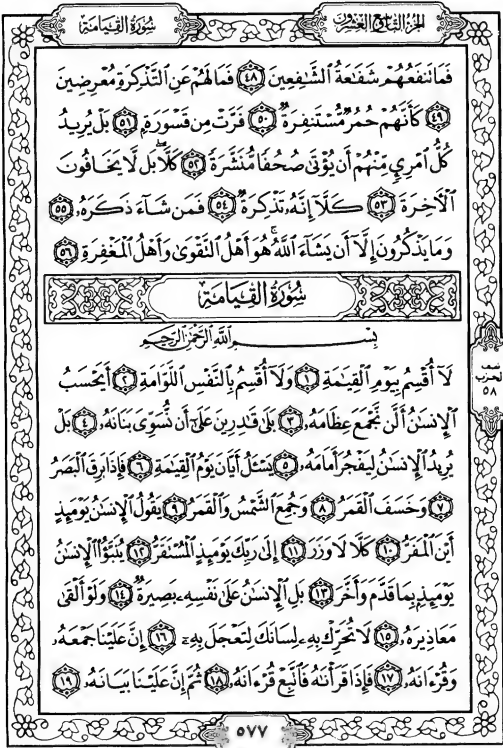 سُورَةُ القِيَامَة
الجزء التاسع والعشرون
فَمَا تَنفَعُهُمْ شَفَٰعَةُ ٱلشَّٰفِعِينَ ٤٨ فَمَا لَهُمْ عَنِ ٱلتَّذْكِرَةِ مُعْرِضِينَ
٤٩ كَأَنَّهُمْ حُمُرٌ مُّسْتَنفِرَةٌ ٥٠ فَرَّتْ مِن قَسْوَرَةٍ ٥١ بَلْ يُرِيدُ
كُلُّ ٱمْرِئٍ مِّنْهُمْ أَن يُؤْتَىٰ صُحُفًا مُّنَشَّرَةً ٥٢ كَلَّا بَل لَّا يَخَافُونَ
ٱلْأَخِرَةَ ٥٣ كَلَّآ إِنَّهُۥ تَذْكِرَةٌ ٥٤ فَمَن شَآءَ ذَكَرَهُۥ ٥٥
وَمَا يَذْكُرُونَ إِلَّآ أَن يَشَآءَ ٱللَّهُ هُوَ أَهْلُ ٱلتَّقْوَىٰ وَأَهْلُ ٱلْمَغْفِرَةِ ٥٦
سُورَةُ القِيَامَة
بِسْمِ ٱللَّهِ ٱلرَّحْمَٰنِ ٱلرَّحِيمِ
لَآ أُقْسِمُ بِيَوْمِ ٱلْقِيَٰمَةِ ١ وَلَآ أُقْسِمُ بِٱلنَّفْسِ ٱللَّوَّامَةِ ٢ أَيَحْسَبُ
ٱلْإِنسَٰنُ أَلَّن نَّجْمَعَ عِظَامَهُۥ ٣ بَلَىٰ قَٰدِرِينَ عَلَىٰٓ أَن نُّسَوِّىَ بَنَانَهُۥ ٤ بَلْ
يُرِيدُ ٱلْإِنسَٰنُ لِيَفْجُرَ أَمَامَهُۥ ٥ يَسْـَٔلُ أَيَّانَ يَوْمُ ٱلْقِيَٰمَةِ ٦ فَإِذَا بَرِقَ ٱلْبَصَرُ
٧ وَخَسَفَ ٱلْقَمَرُ ٨ وَجُمِعَ ٱلشَّمْسُ وَٱلْقَمَرُ ٩ يَقُولُ ٱلْإِنسَٰنُ يَوْمَئِذٍ
أَيْنَ ٱلْمَفَرُّ ١٠ كَلَّا لَا وَزَرَ ١١ إِلَىٰ رَبِّكَ يَوْمَئِذٍ ٱلْمُسْتَقَرُّ ١٢ يُنَبَّؤُا۟ ٱلْإِنسَٰنُ
يَوْمَئِذٍۭ بِمَا قَدَّمَ وَأَخَّرَ ١٣ بَلِ ٱلْإِنسَٰنُ عَلَىٰ نَفْسِهِۦ بَصِيرَةٌ ١٤ وَلَوْ أَلْقَىٰ
مَعَاذِيرَهُۥ ١٥ لَا تُحَرِّكْ بِهِۦ لِسَانَكَ لِتَعْجَلَ بِهِۦٓ ١٦ إِنَّ عَلَيْنَا جَمْعَهُۥ
وَقُرْءَانَهُۥ ١٧ فَإِذَا قَرَأْنَٰهُ فَٱتَّبِعْ قُرْءَانَهُۥ ١٨ ثُمَّ إِنَّ عَلَيْنَا بَيَانَهُۥ ١٩
نصف
الحزب
٥٨
٥٧٧